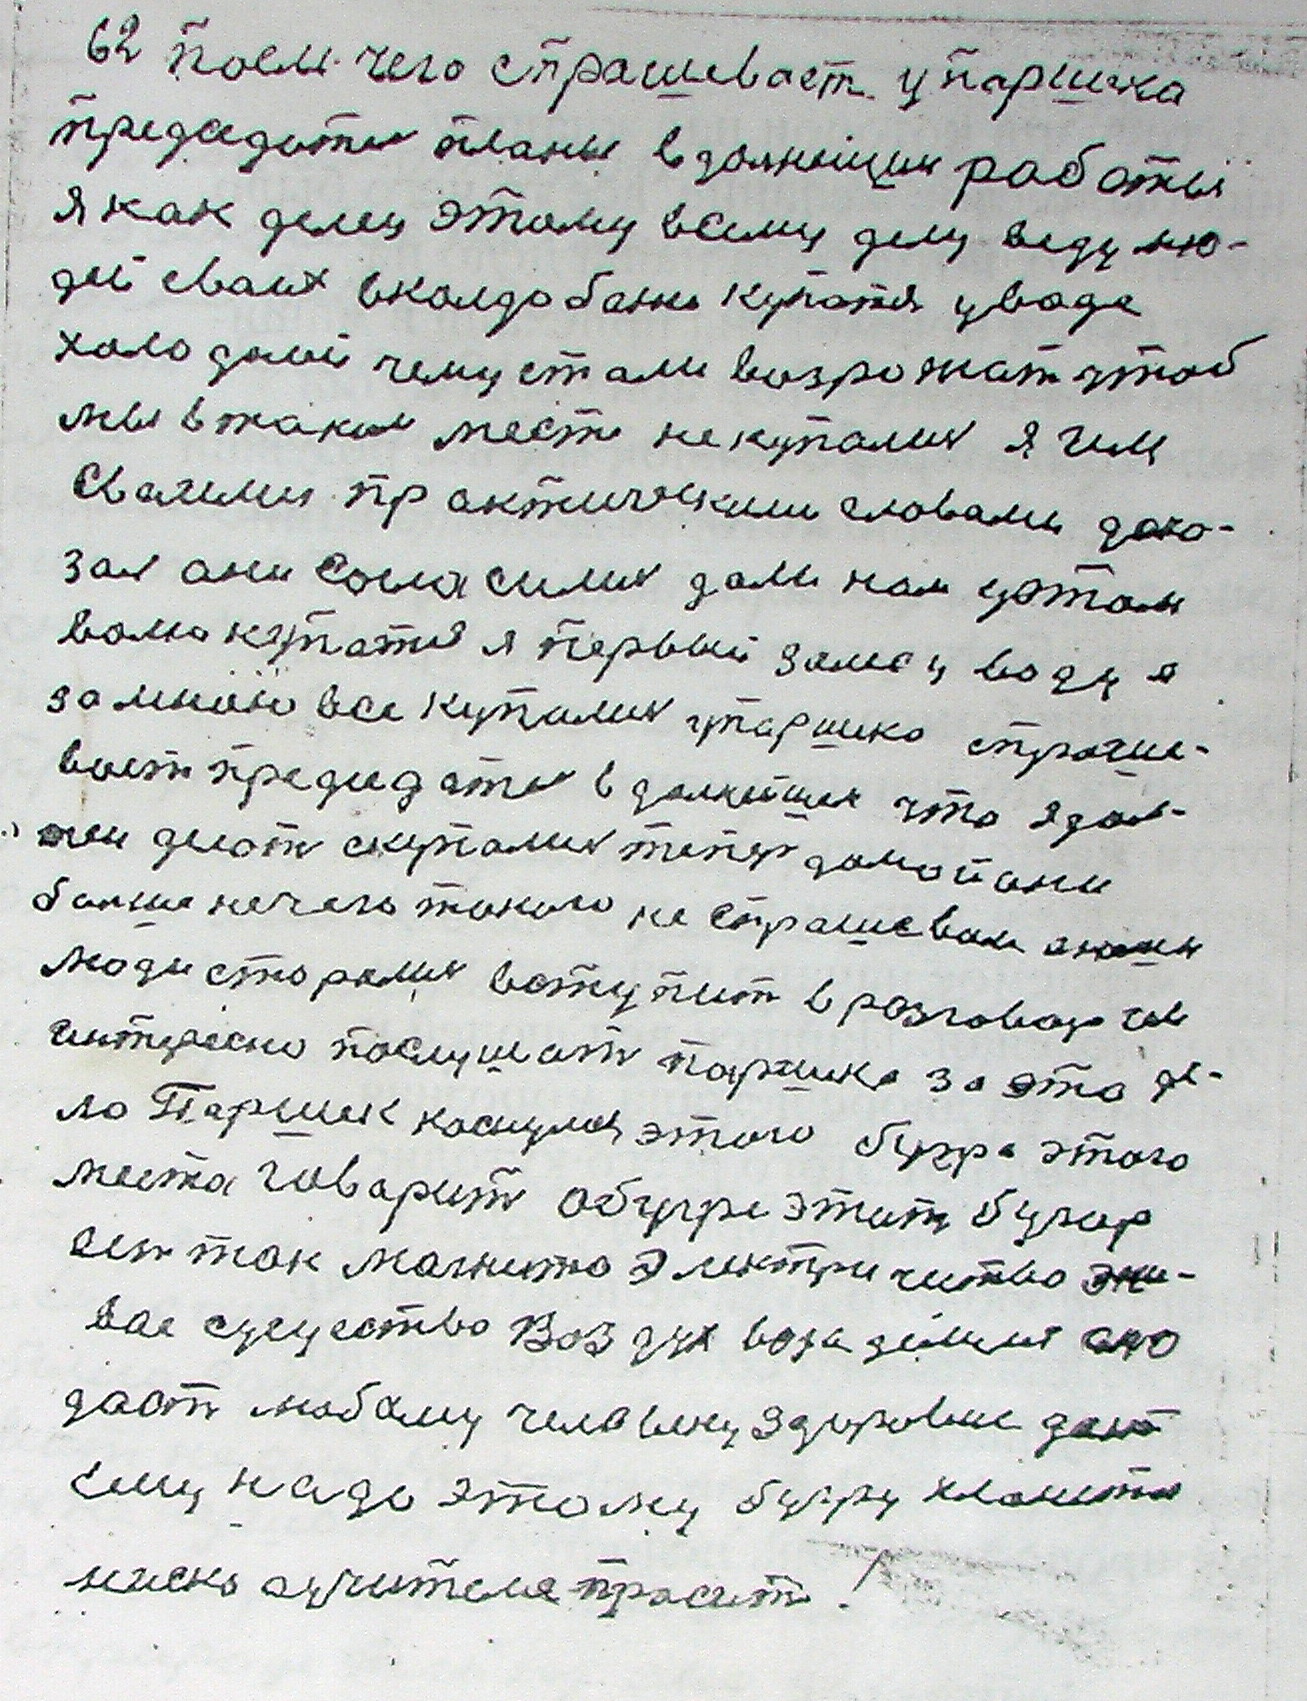 62 после чего спрашевает у паршика
председатель планы вдальнейшем работы
я как делец этому всему делу веду лю-
дей своих вколдобани купатя у воде
холодной чему стали возрожат чтоб
мы в таком месте не купались я им
своими практическими словами дока-
зал они согласились дали нам у этом
волю купатя я первый залес у воду а
за мною все купались у паршика спраше-
вает председатель в дальнейшем что я дол-
жен делать скупались теперь домой они
больше нечего такого не спрашевали а наши
люди старались вступит в разговор им
интересно послушать паршика за это де-
ло Паршек коснулся этого бугра этого
места говорит обугре этот бугор
ест ток магнито электричество жи-
вое существо Воздух вода земля оно
дает любому человеку здоровие
ему надо этому бугру кланится
низко а учителя просить!